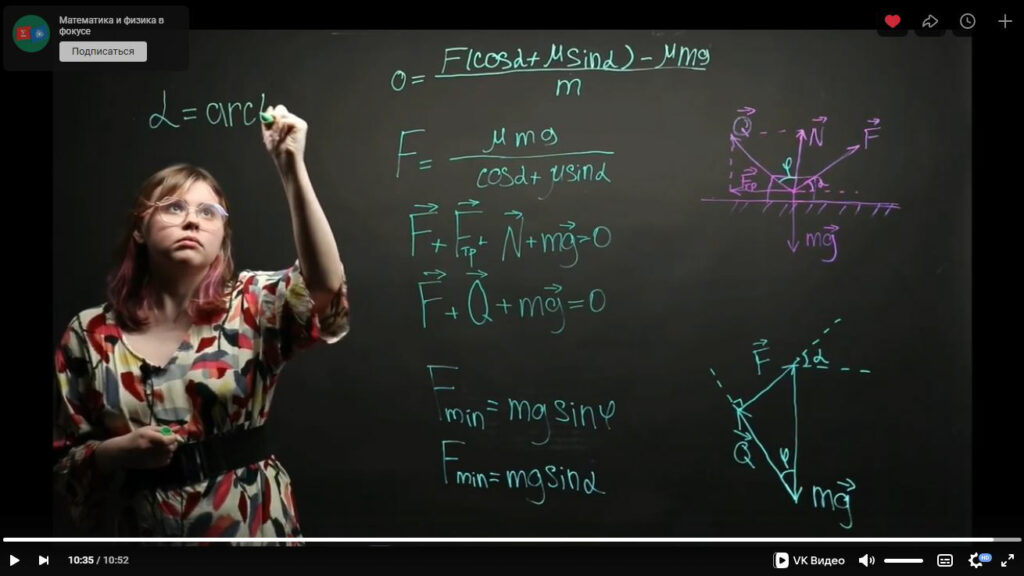 Математика и физика в
фокусе
Подписаться
0 = F(cosα + μsinα) − μmg / m
α = arct
F = μmg / cosα + μsinα
F⃗ + F⃗тр + N⃗ + mg⃗ = 0
F⃗ + Q⃗ + mg⃗ = 0
Fmin = mg sinφ
Fmin = mg sinα
Q⃗ N⃗ F⃗
φ
F⃗тр α
mg⃗
F⃗ α
Q⃗ φ
mg⃗
10:35 / 10:52
VK Видео
HD